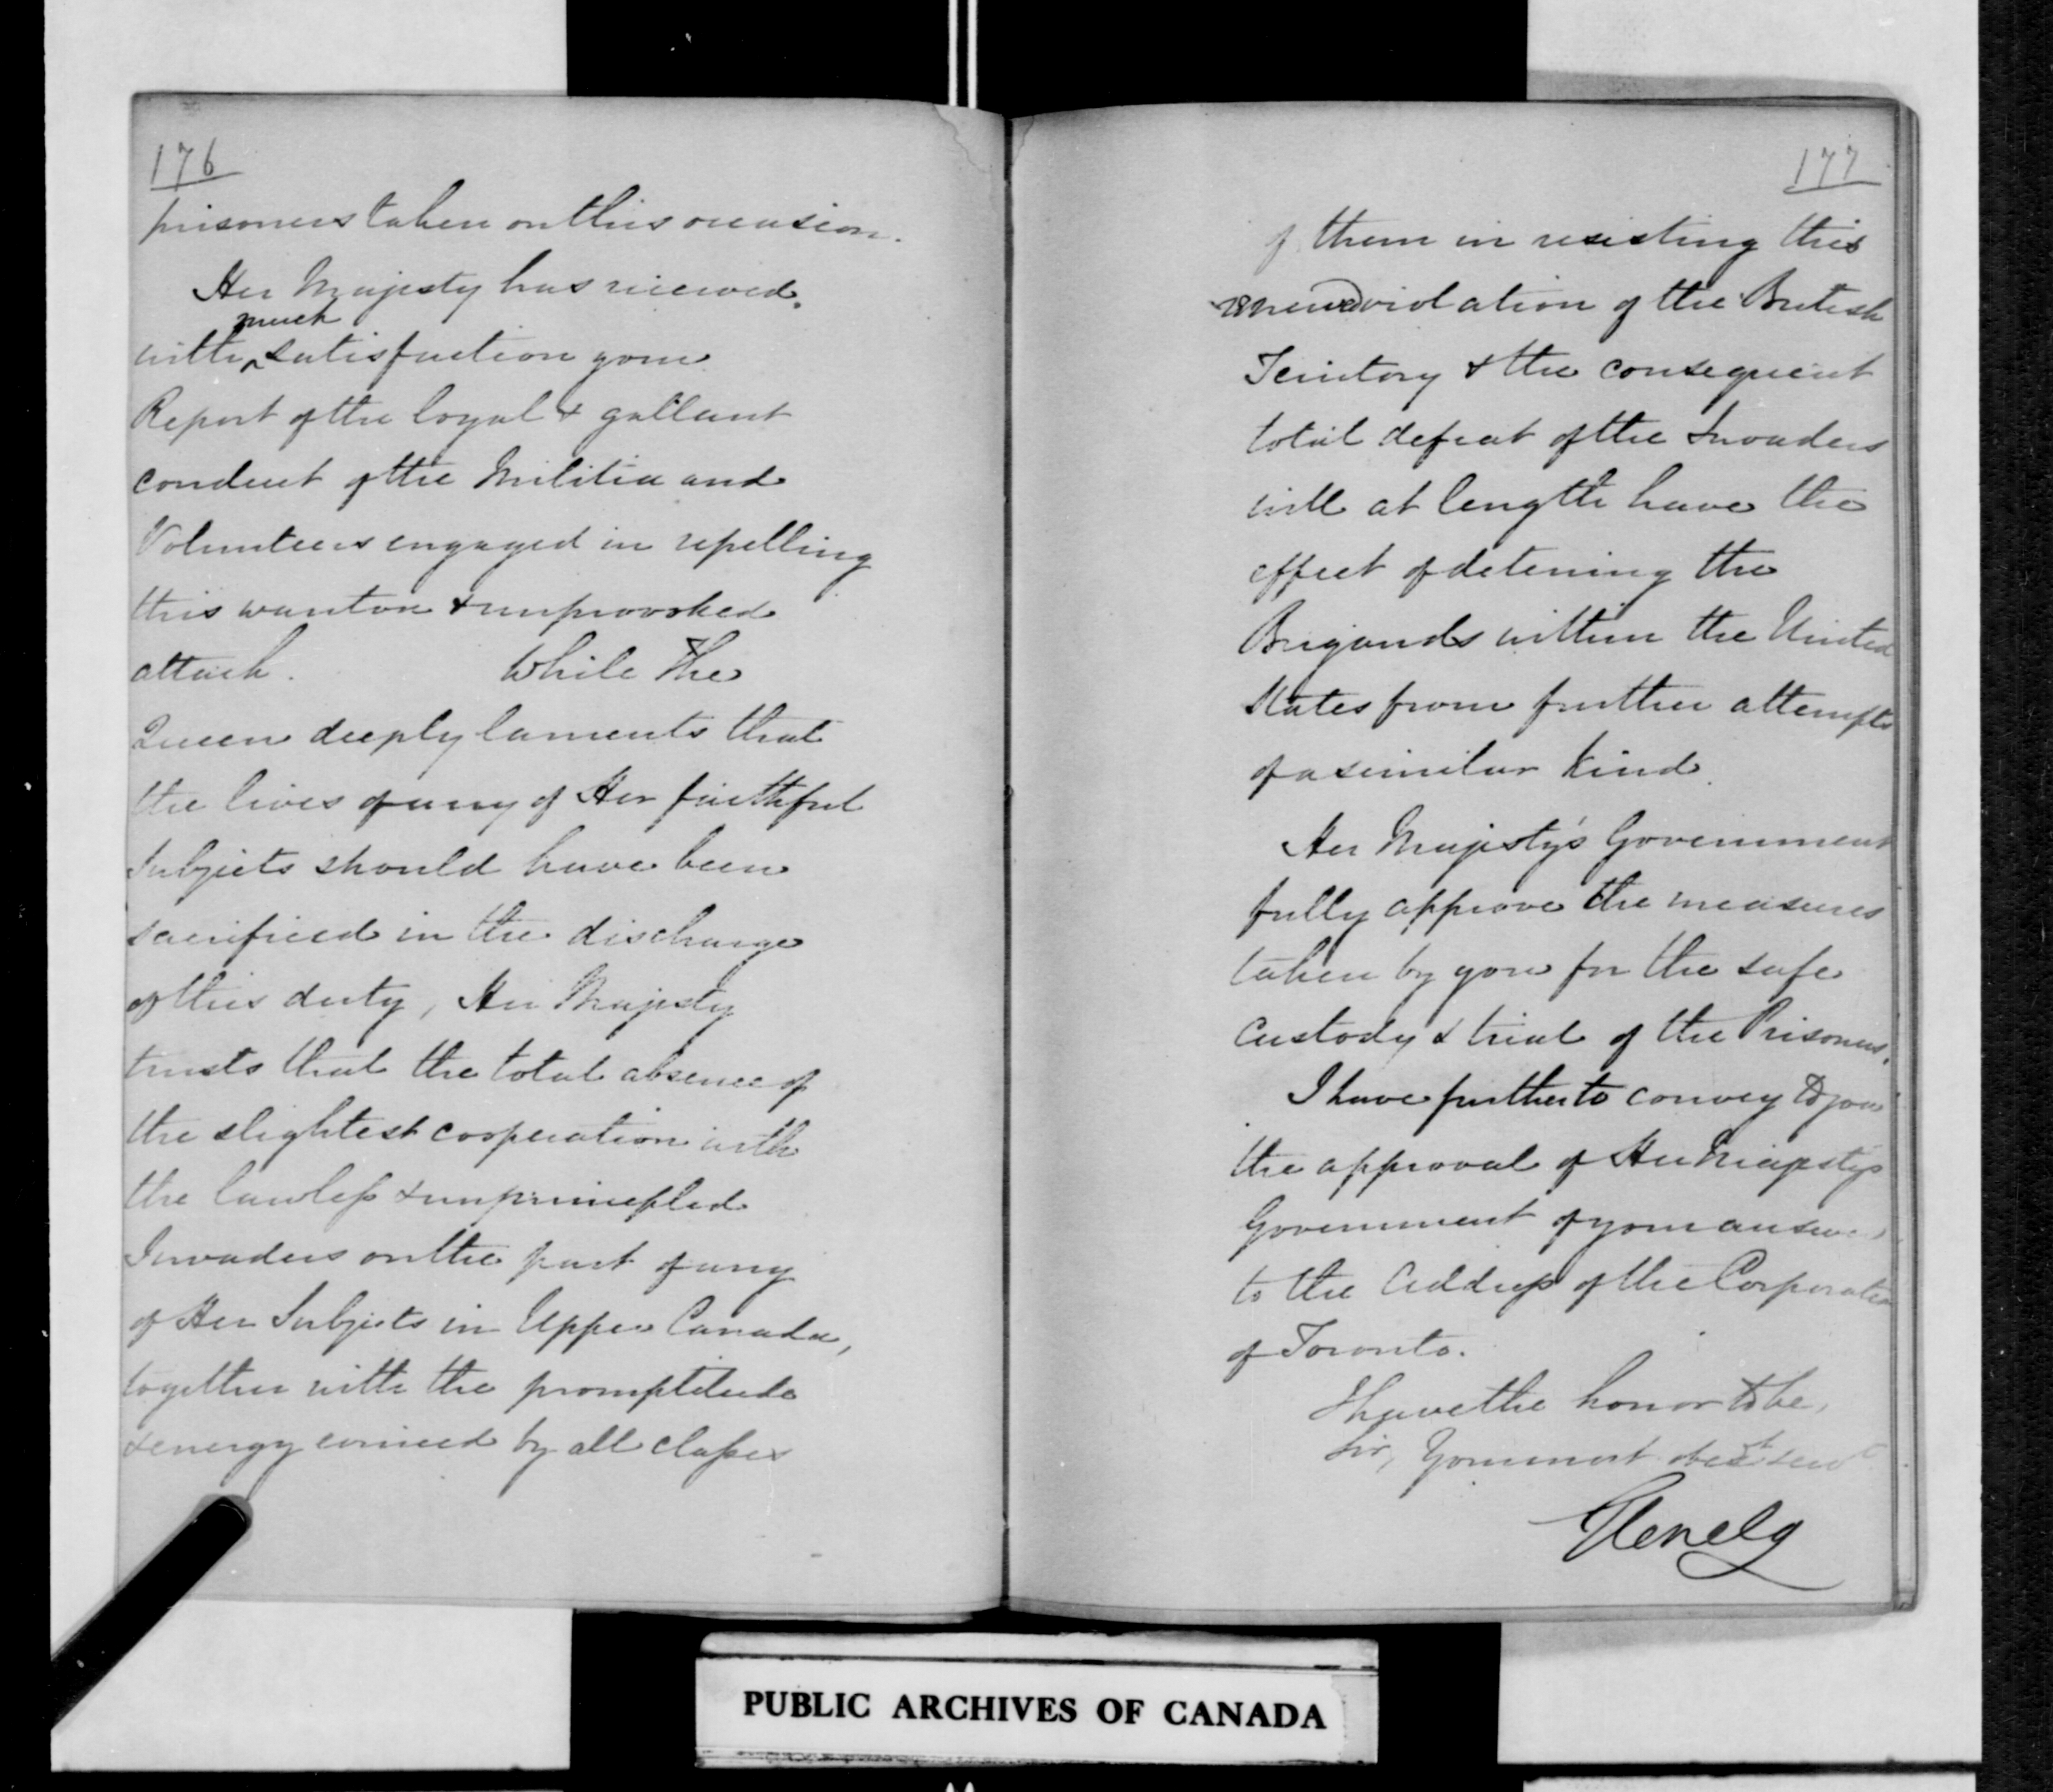 176
prisoners taken on this occasion.
Her Majesty has received
much
with ^ satisfaction your
Report of the loyal & gallant
conduct of the Militia and
Volunteers engaged in repelling
this wanton & unprovoked
attack. While The
Queen deeply laments that
the lives of any of Her faithful
Subjects should have been
sacrificed in the discharge
of this duty, Her Majesty
trusts that the total absence of
the slightest cooperation with
the lawless & unprincipled
Invaders on the part of any
of Her Subjects in Upper Canada,
together with the promptitude
& energy evinced by all classes
177
of them in resisting this
renewed violation of the British
Territory & the consequent
total defeat of the Invaders
will at length have the
effect of detering the
Brigands within the United
States from further attempts
of a similar kind.
Her Majesty's Government
fully approve the measures
taken by you for the safe
custody & trial of the Prisoners.
I have further to convey to you
the approval of Her Majesty's
Government of your answer
to the Address of the Corporation
of Toronto.
I have the honor to be,
Sir, Your most obedt servt
Glenelg
PUBLIC ARCHIVES OF CANADA